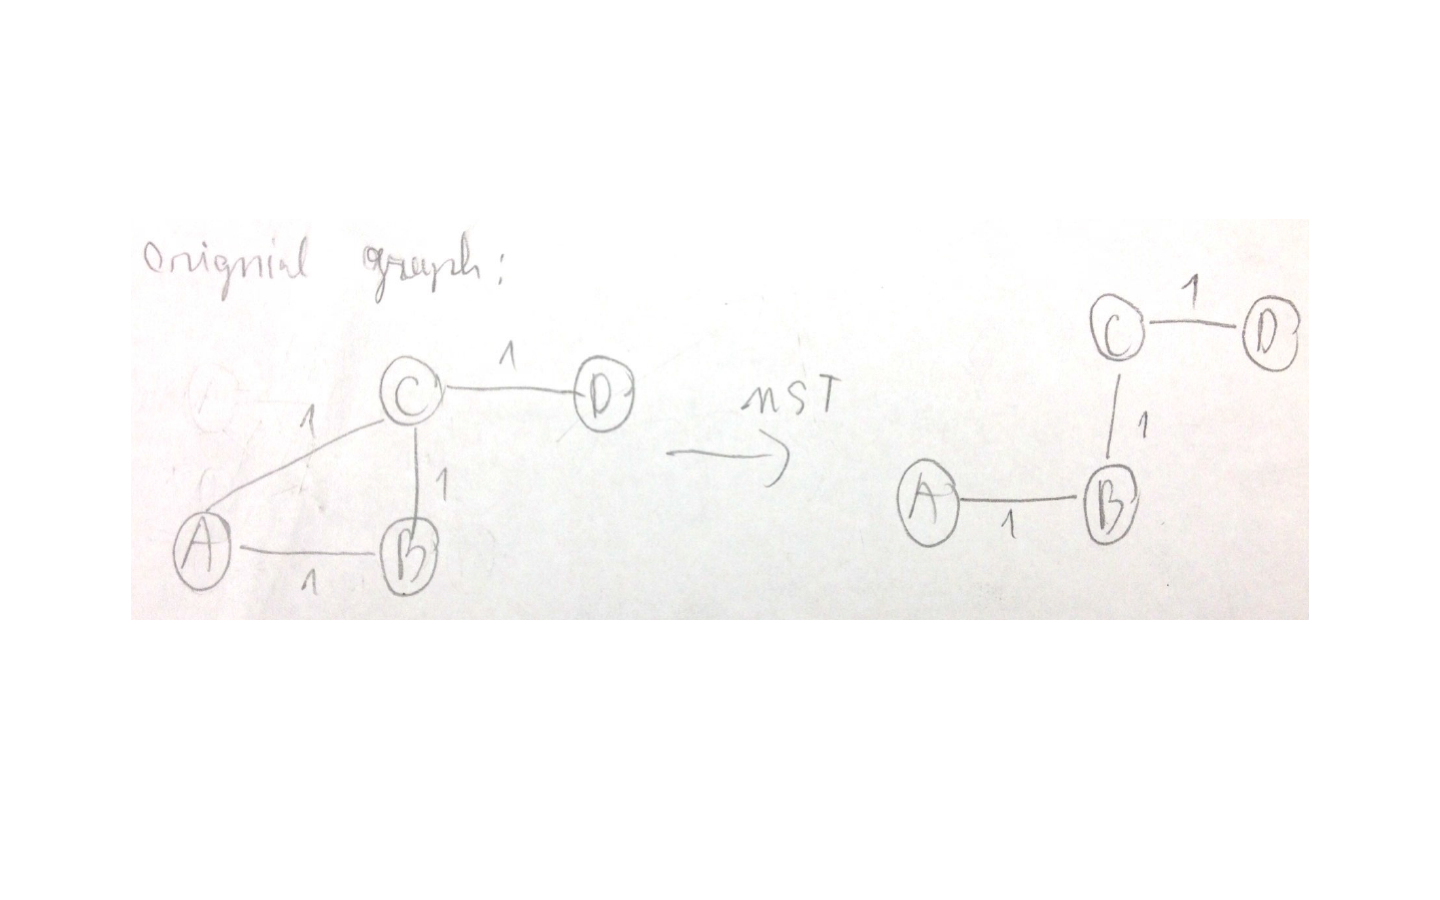 Orignial graph:
1
C
D
1
1
A
B
1
MST
1
C
D
1
A
B
1